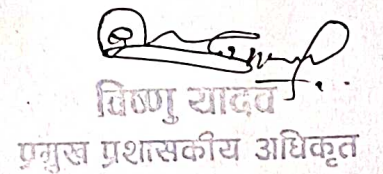 विष्णु यादव
प्रमुख प्रशासकीय अधिकृत